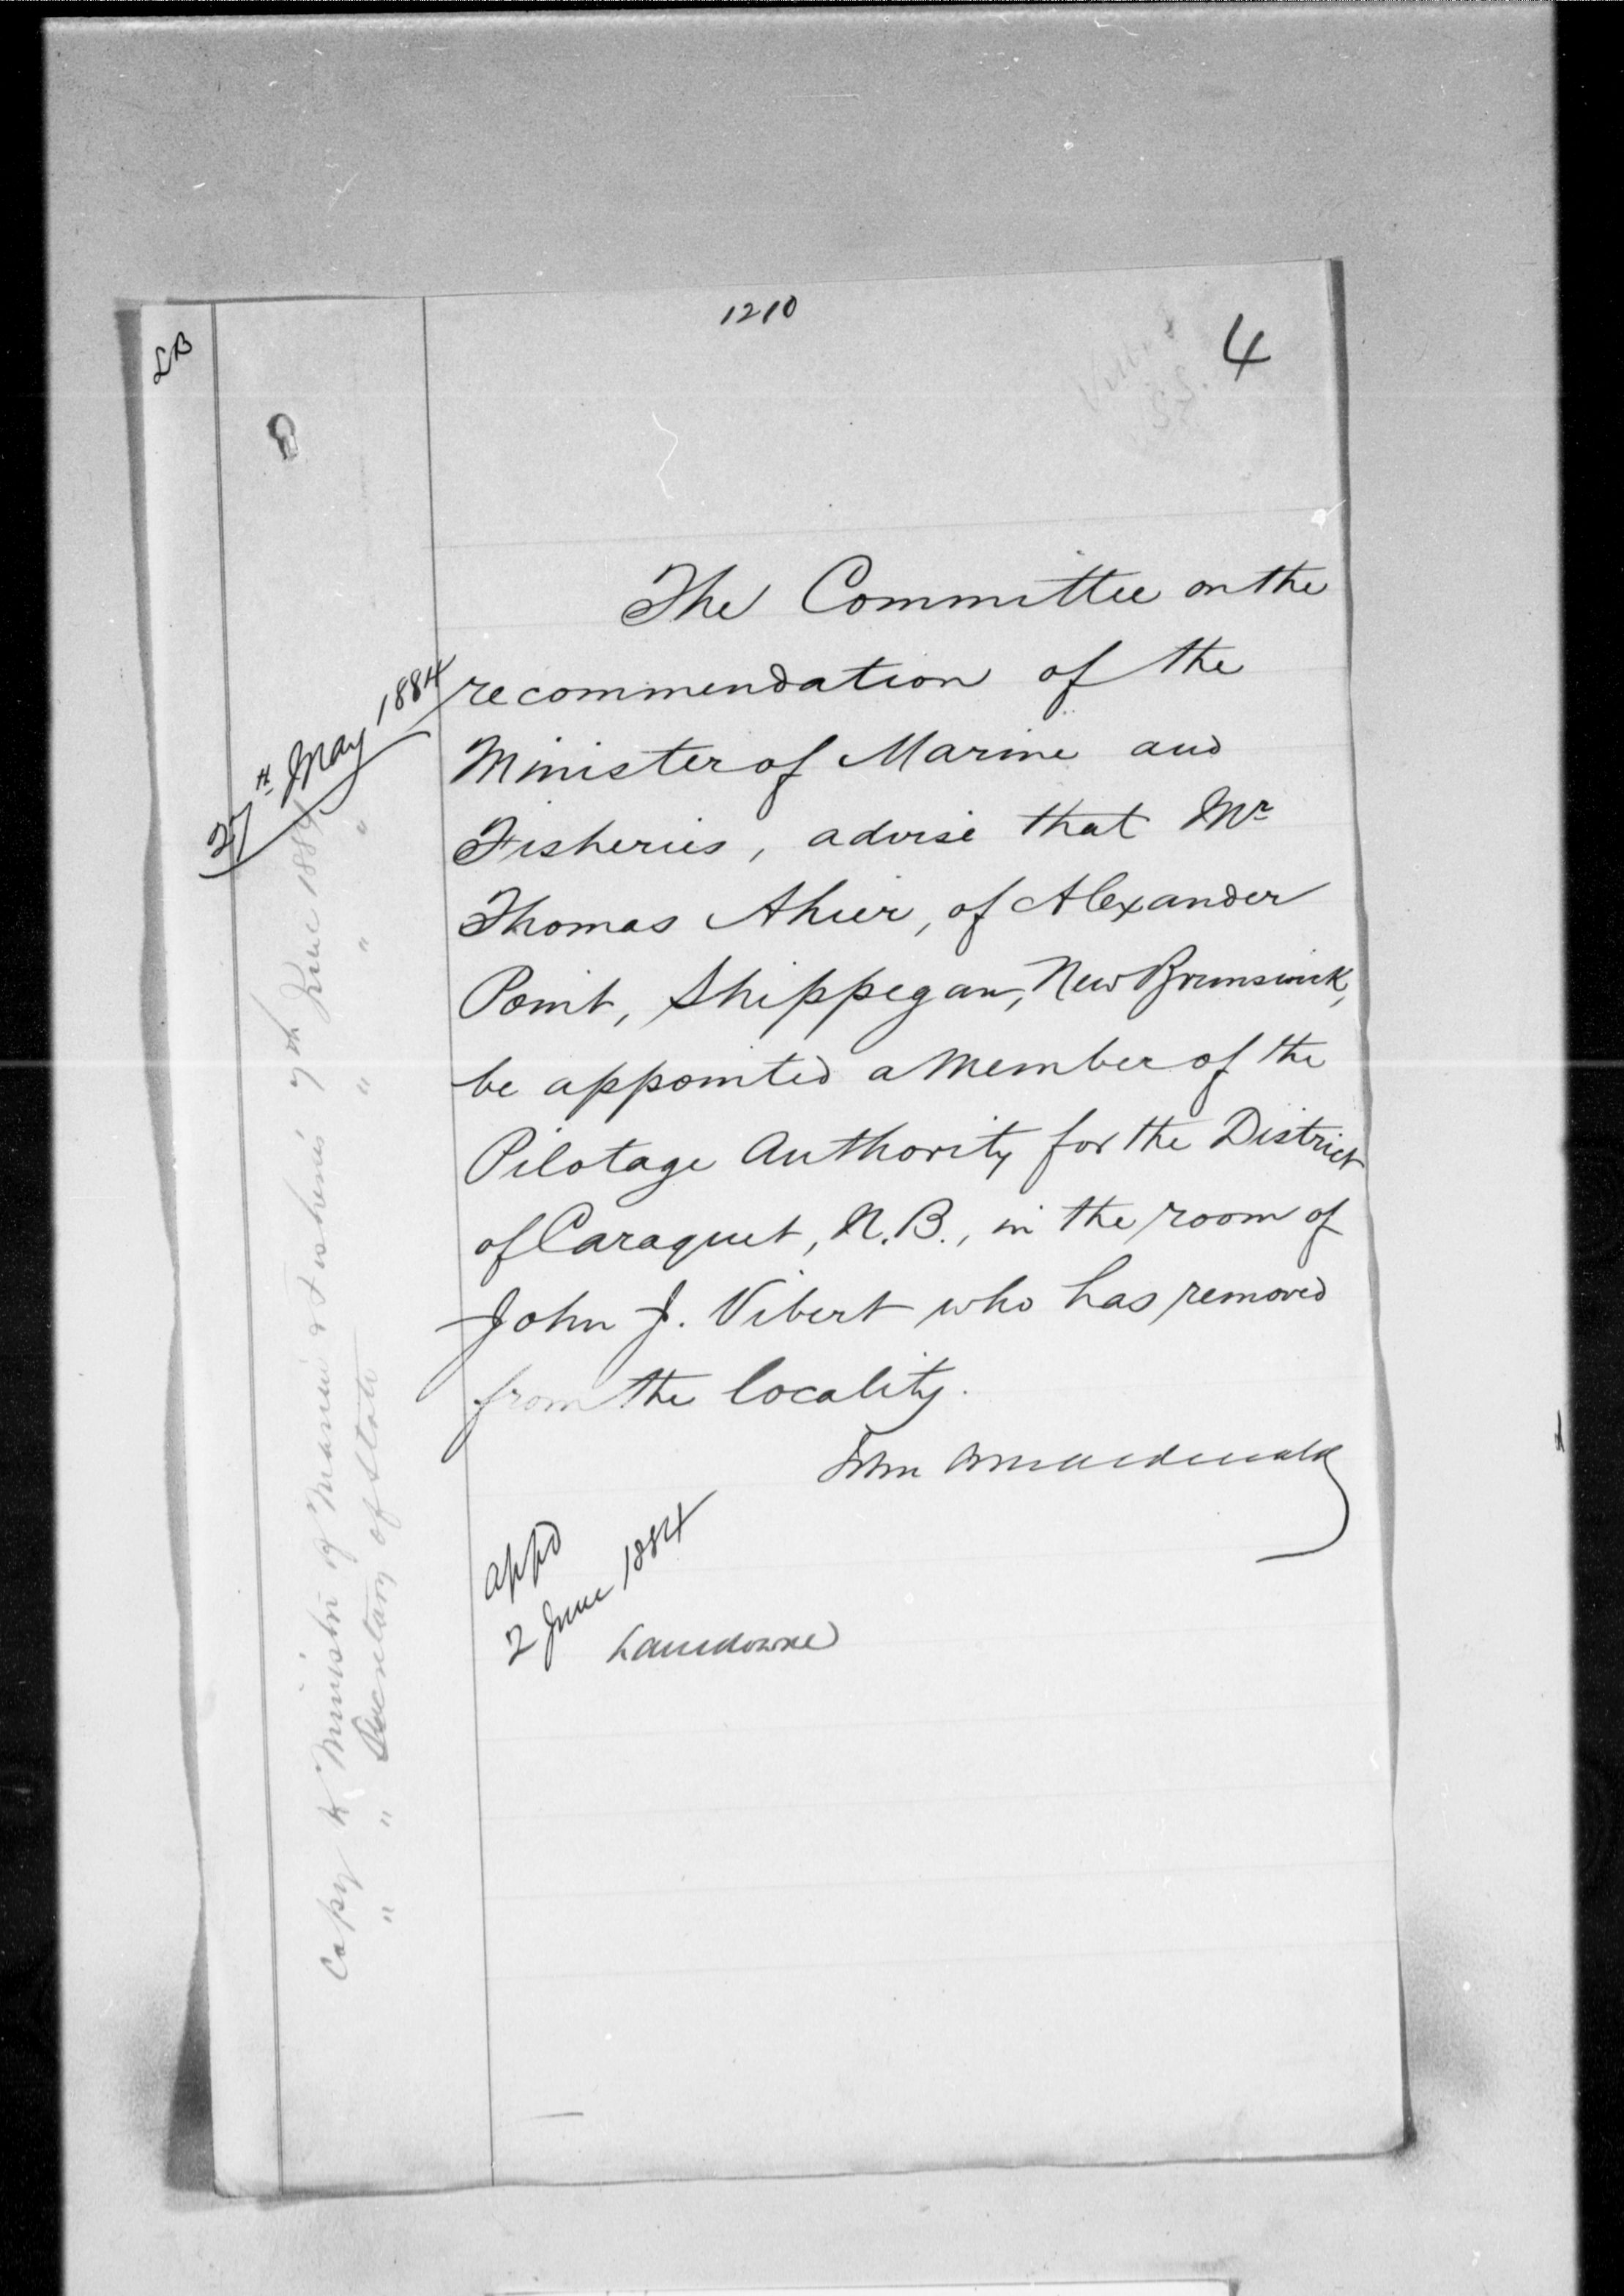 1210
4
LB
27th May 1884
The Committee on the
recommendation of the
Minister of Marine and
Fisheries, advise that Mr
Thomas Ahier, of Alexander
Point, Shippegan, New Brunswick,
be appointed a Member of the
Pilotage Authority for the District
of Caraquet, N.B., in the room of
John J. Vibert who has removed
from the locality.
John A Macdonald
appd
2 June 1884
Lansdowne
Copy to Minister of Marine & Fisheries 7th June 1884
" " Secretary of State " " "